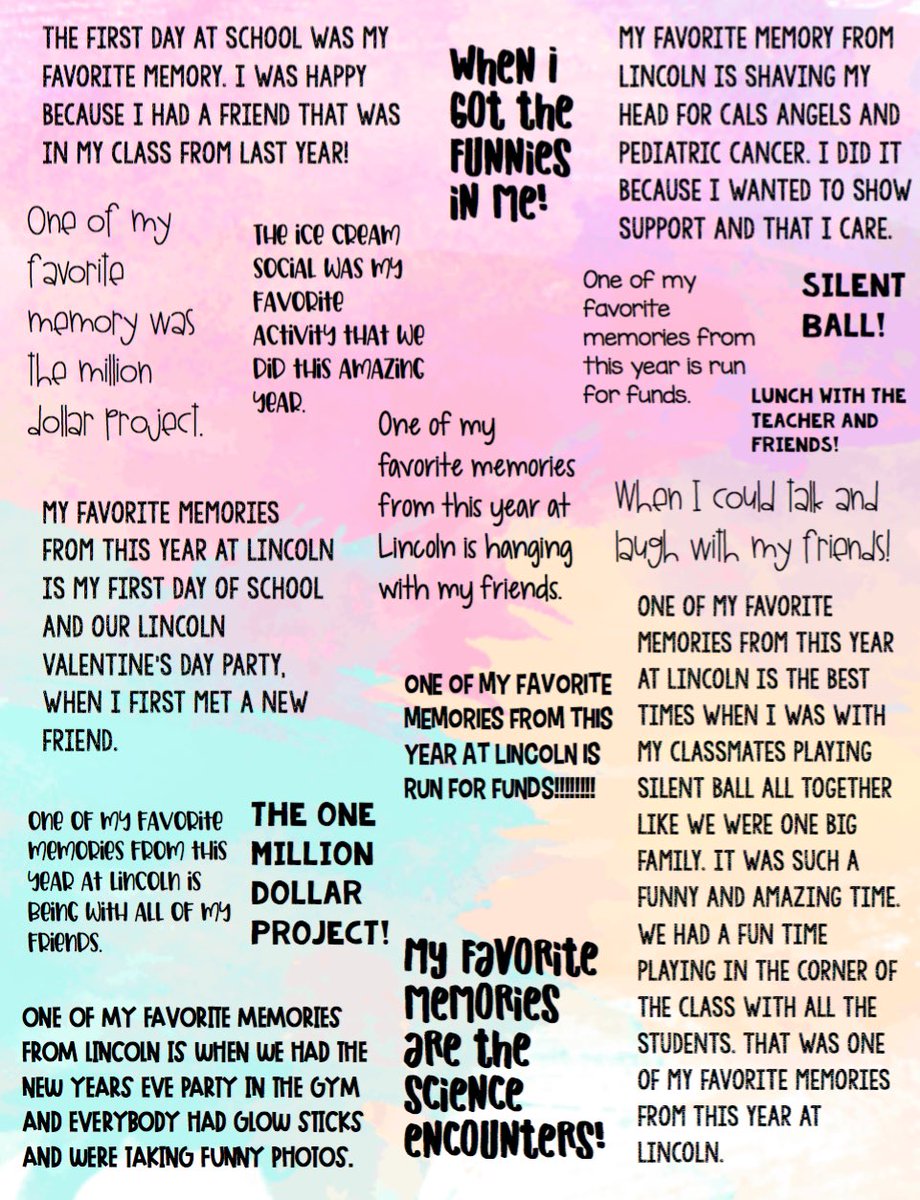 THE FIRST DAY AT SCHOOL WAS MY
FAVORITE MEMORY. I WAS HAPPY
BECAUSE I HAD A FRIEND THAT WAS
IN MY CLASS FROM LAST YEAR!
When i
Got the
FUNNies
in me!
MY FAVORITE MEMORY FROM
LINCOLN IS SHAVING MY
HEAD FOR CALS ANGELS AND
PEDIATRIC CANCER. I DID IT
BECAUSE I WANTED TO SHOW
SUPPORT AND THAT I CARE.
One of my
favorite
memory was
the million
dollar project.
THE ICE CREAM
SOCIAL WAS MY
FAVORITE
ACTIVITY THAT WE
DID THIS AMAZING
YEAR.
One of my
favorite
memories from
this year is run
for funds.
SILENT
BALL!
LUNCH WITH THE
TEACHER AND
FRIENDS!
One of my
favorite memories
from this year at
Lincoln is hanging
with my friends.
When I could talk and
laugh with my friends!
MY FAVORITE MEMORIES
FROM THIS YEAR AT LINCOLN
IS MY FIRST DAY OF SCHOOL
AND OUR LINCOLN
VALENTINE'S DAY PARTY,
WHEN I FIRST MET A NEW
FRIEND.
ONE OF MY FAVORITE
MEMORIES FROM THIS YEAR
AT LINCOLN IS THE BEST
TIMES WHEN I WAS WITH
MY CLASSMATES PLAYING
SILENT BALL ALL TOGETHER
LIKE WE WERE ONE BIG
FAMILY. IT WAS SUCH A
FUNNY AND AMAZING TIME.
WE HAD A FUN TIME
PLAYING IN THE CORNER OF
THE CLASS WITH ALL THE
STUDENTS. THAT WAS ONE
OF MY FAVORITE MEMORIES
FROM THIS YEAR AT
LINCOLN.
ONE OF MY FAVORITE
MEMORIES FROM THIS
YEAR AT LINCOLN IS
RUN FOR FUNDS!!!!!!!!!
One of my favorite
memories from this
year at Lincoln is
being with all of my
friends.
THE ONE
MILLION
DOLLAR
PROJECT!
My favorite
memories
are the
science
encounters!
ONE OF MY FAVORITE MEMORIES
FROM LINCOLN IS WHEN WE HAD THE
NEW YEARS EVE PARTY IN THE GYM
AND EVERYBODY HAD GLOW STICKS
AND WERE TAKING FUNNY PHOTOS.